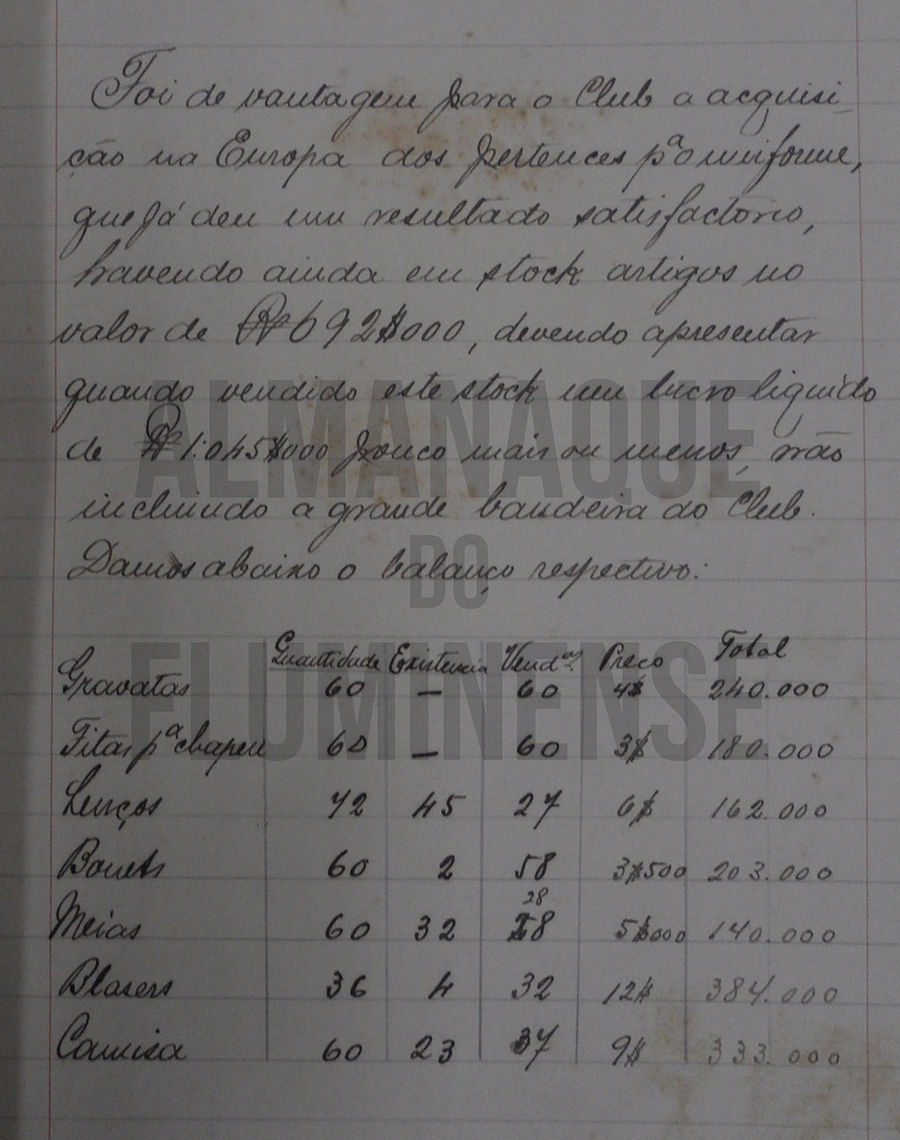 Foi de vantagem para o Club a acquisi
ção na Europa dos pertences pª o uniforme,
que já deu um resultado satisfactorio,
havendo ainda em stock artigos no
valor de Rs 692$000, devendo apresentar
quando vendido este stock um lucro liquido
de Rs 1:045$000 pouco mais ou menos, não
incluindo a grande bandeira do Club.
Damos abaixo o balanço respectivo:
Quantidade Existencia Vendas Preco Total
Gravatas 60 — 60 4$ 240.000
Fitas pª chapeu 60 — 60 3$ 180.000
Lenços 72 45 27 6$ 162.000
Bonets 60 2 58 3$500 203.000
28
Meias 60 32 28 5$000 140.000
Blasers 36 4 32 12$ 384.000
Camisa 60 23 37 9$ 333.000
ALMANAQUE
DO
FLUMINENSE